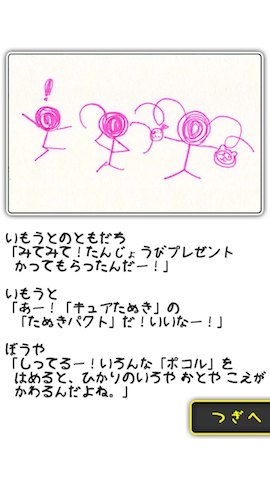 !
いもうとのともだち
「みてみて！たんじょうびプレゼント
かってもらったんだー！」
いもうと
「あー！「キュアたぬき」の
「たぬきパクト」だ！いいなー！」
ぼうや
「しってるー！いろんな「ポコル」を
はめると、ひかりのいろや おとや こえが
かわるんだよね。」
つぎへ